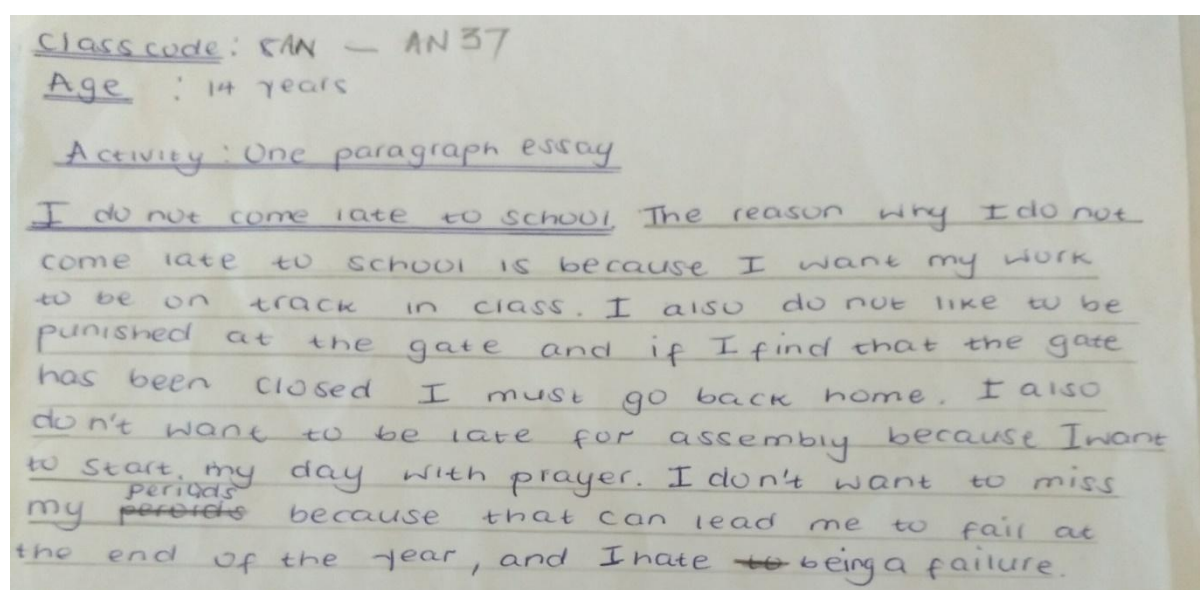 Class code: SAN - AN 37
Age : 14 years
Activity: One paragraph essay
I do not come late to school. The reason why I do not
come late to school is because I want my work
to be on track in class. I also do not like to be
punished at the gate and if I find that the gate
has been closed I must go back home. I also
don't want to be late for assembly because I want
to start my day with prayer. I don't want to miss
my periods because that can lead me to fail at
the end of the year, and I hate being a failure.